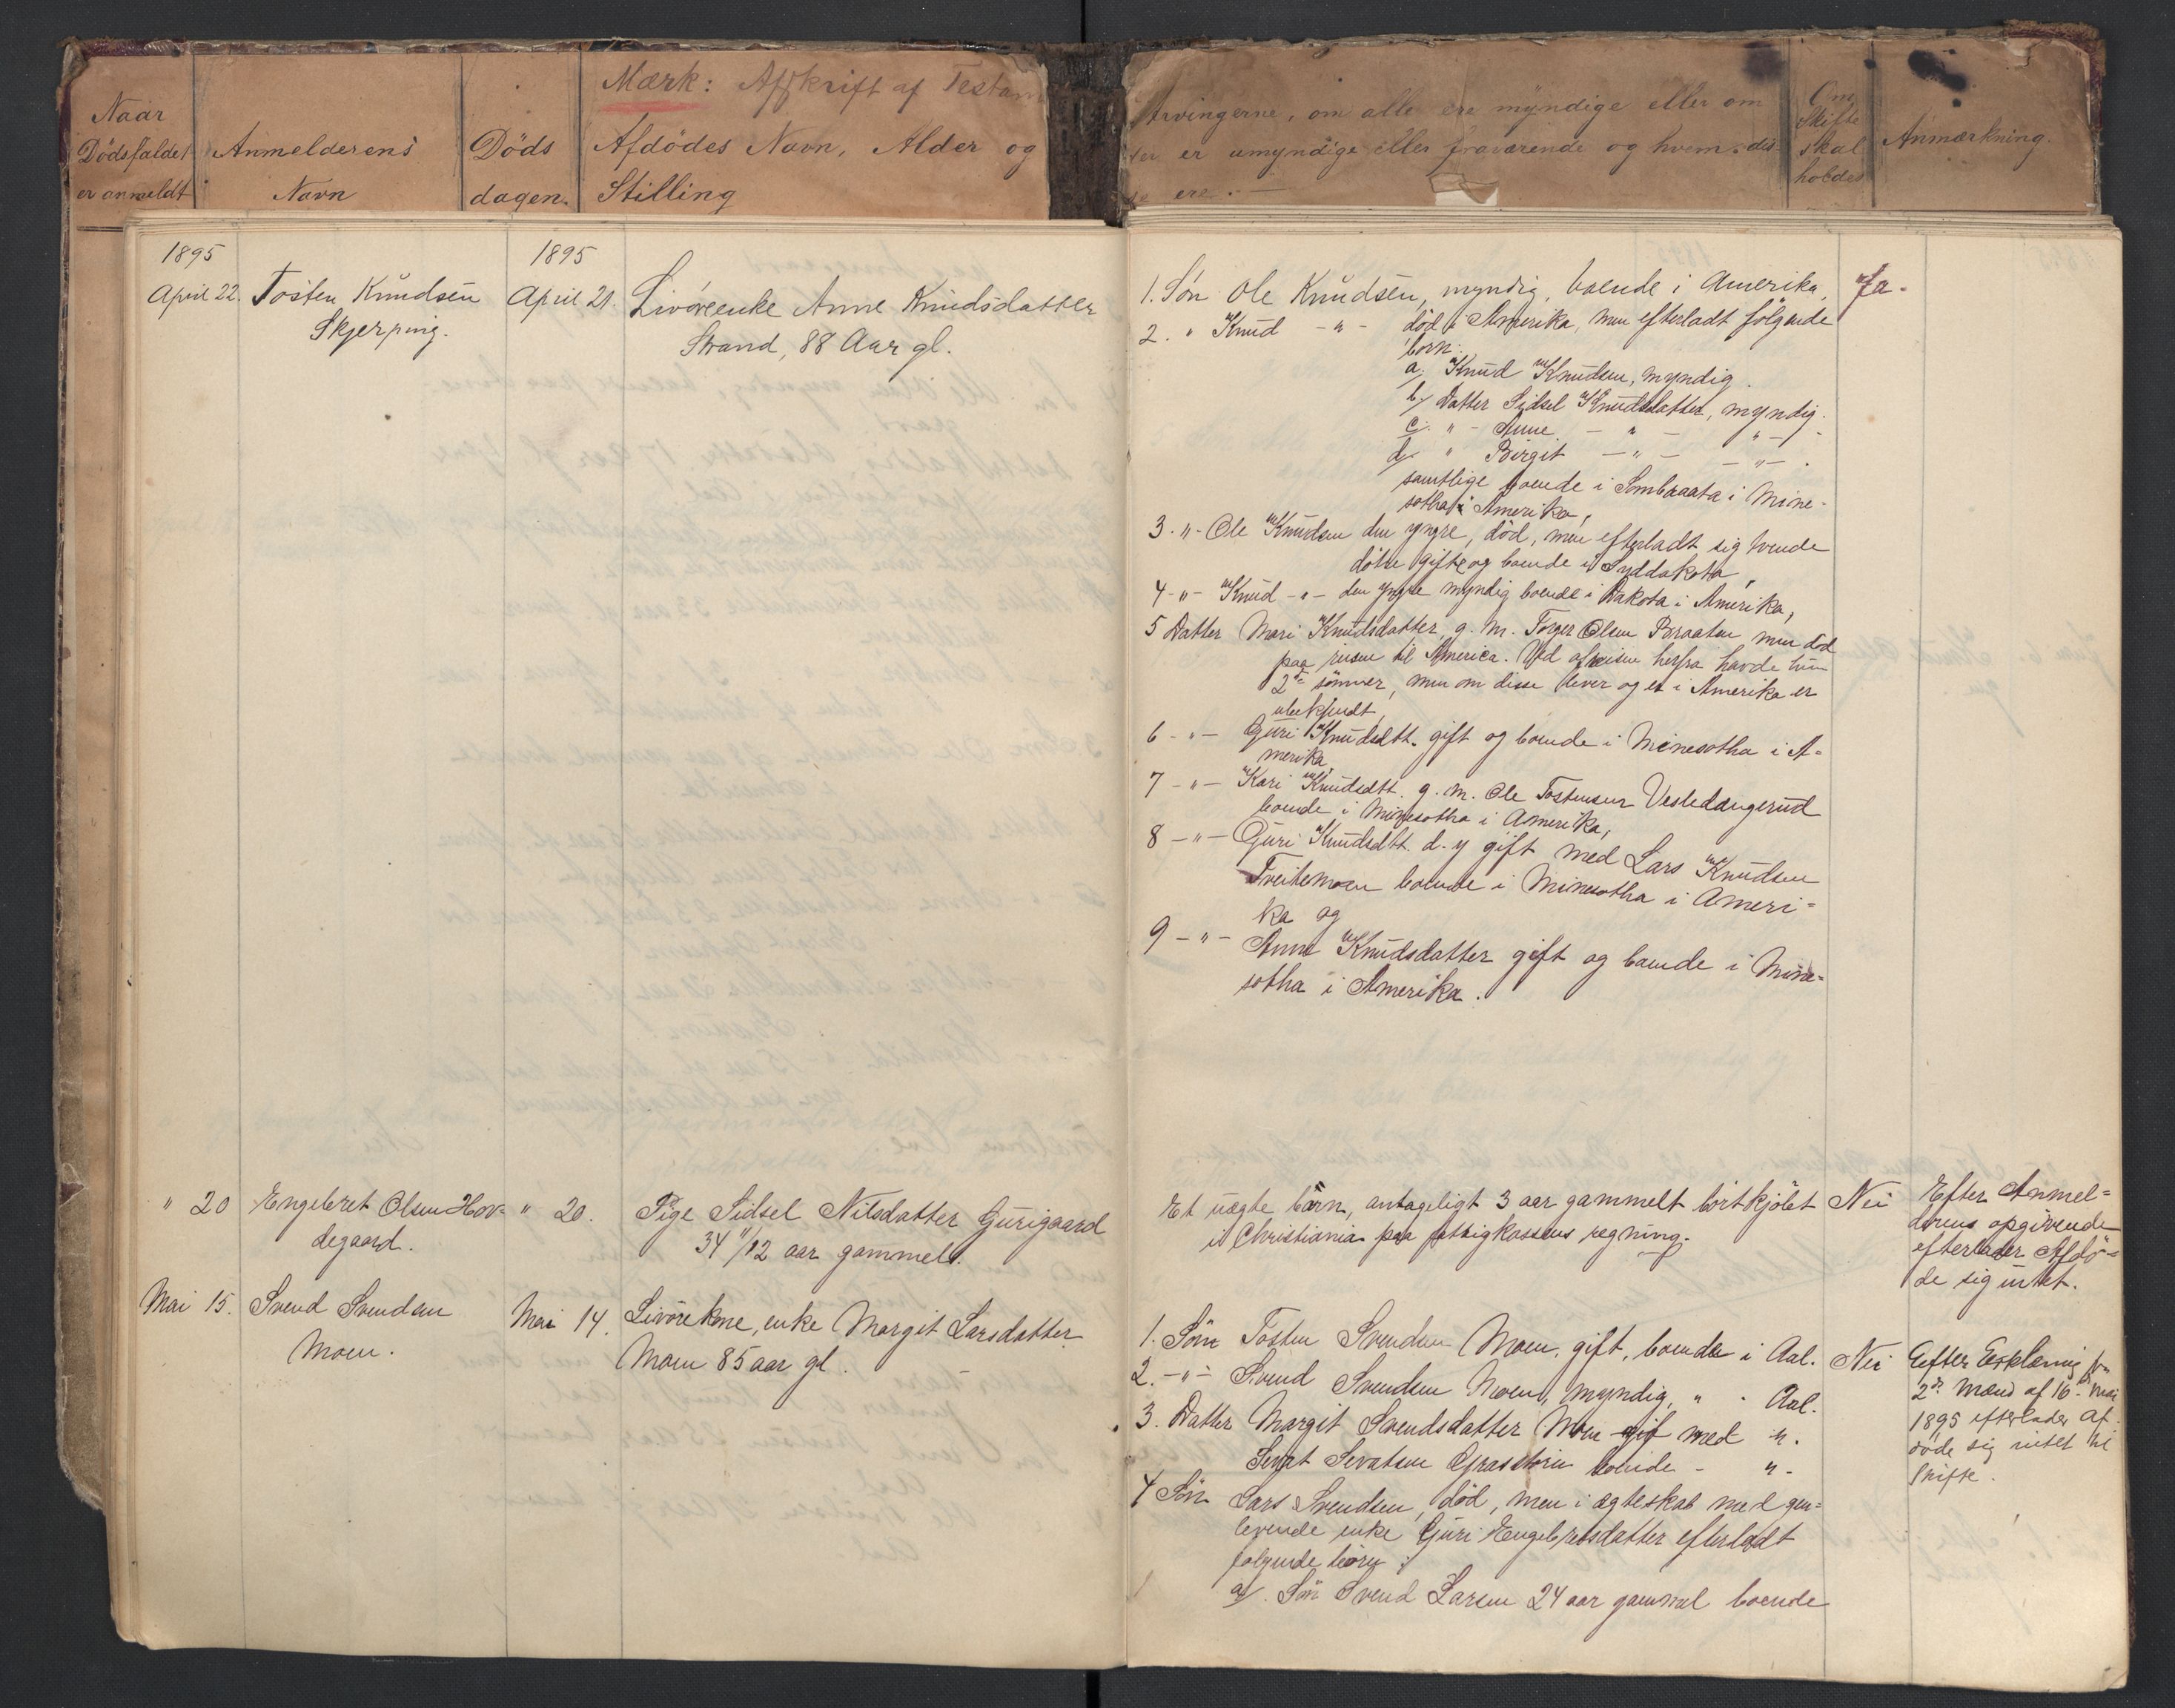 Naar
Dödsfaldet
er anmeldt
Anmelderens
Navn
Döds
dagen.
Mærk: Afskrift af Testam
Afdödes Navn, Alder og
Stilling
Arvingerne, om alle ere myndige eller om
er umyndige eller fraværende og hvem dis-
ere.
Om
Skifte
skal
holdes
Anmærkning.
1895
April 22.
Tosten Knudsen
Skjerping.
1895
April 21.
Livöreenke Anne Knudsdatter
Strand, 88 Aar gl.
1. Sön Ole Knudsen, myndig, boende i Amerika,
2. " Knud - " - död i Amerika, men efterladt fölgende
börn:
a. Knud Knudsen, myndig.
b/ Datter Sidsel Knudsdatter, myndig.
c. " - Anne - " - " -
d/. " Birgit - " - - " - .
samtlige boende i Sombraata i Mine-
sotha i Amerika,
3 - " - Ole Knudsen den yngre, död, men efterladt sig tvende
dötre gifte og boende i Syddakota,
4 - " - Knud - " - den yngre myndig boende i Dakota i Amerika,
5 Datter Mari Knudsdatter, g. m. Torger Olsen Braaten, men död
paa reisen til America. Ved afreisen herfra havde hun
2de sönner, men om disse lever og er i Amerika er
ubekjendt,
6 - " - Guri Knudsdtt. gift og boende i Minesotha i A=
merika,
7 - " - Kari Knudsdtt. g. m. Ole Tostensen Vesledangerud
boende i Minesotha i Amerika,
8 - " - Guri Knudsdtt. d. y gift med Lars Knudsen
Tveitemoen boende i Minesotha i Ameri=
ka og
9 - " - Anne Knudsdatter gift og boende i Mine=
sotha i Amerika.
Ja.
" 20
Engebret Olsen Hov=
degaard.
" 20.
Pige Sidsel Nilsdatter Gurigaard
34 11/12 aar gammel.
Et uægte barn, antageligt 3 aar gammelt bortkjöbt
i Christiania paa fattigkassens regning.
Nei
Efter Anmel=
derens opgivende
efterlader Afdö=
de sig intet.
Mai 15.
Svend Svendsen
Moen.
Mai 14.
Livörekone, enke Margit Larsdatter
Moen 85 aar gl.
1. Sön Tosten Svendsen Moen, gift, boende i Aal.
2. - " - Svend Svendsen Moen, myndig, " - Aal.
3. Datter Margit Svendsdatter Moen gif med ".
Sevat Sevatsen boende - " -
4 Sön Lars Svendsen, död, men i ægteskab med gen=
levende enke Guri Engebretsdatter efterladt
fölgende börn:
a/. Sön Svend Larsen 24 aar gammel boende
Nei
Efter Erklæring fra
2de Mænd af 16. Mai
1895 efterlader Af-
döde sig intet til
Skifte.